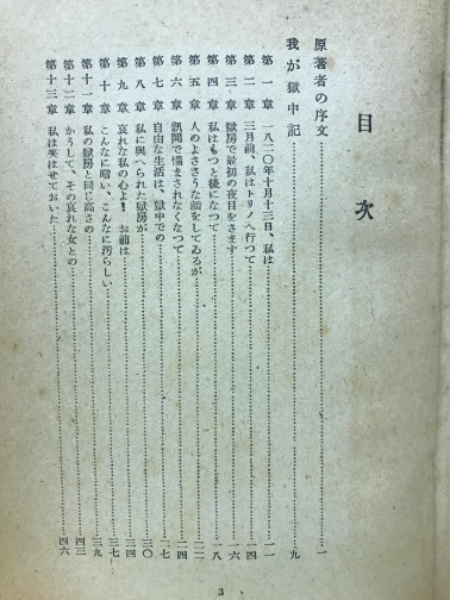 目次
原著者の序文……………一
我が獄中記……………九
第一章 一八二〇年十月十三日、私は……………一一
第二章 三月前、私はトリノへ行つて……………一四
第三章 獄房で最初の夜目をさます……………一六
第四章 私はもつと後になつて……………一八
第五章 人のよささうな顔をしてゐるが……………二二
第六章 訊問で悩まされなくなつて……………二四
第七章 自由な生活は、獄中での……………二七
第八章 私に与へられた獄房が……………三〇
第九章 哀れな私の心よ！お前は……………三四
第十章 こんなに暗い、こんなに汚らしい……………三七
第十一章 私の獄房と同じ高さの……………三九
第十二章 かうして、その哀れな女との……………四三
第十三章 私は笑はせておいた……………四六
3